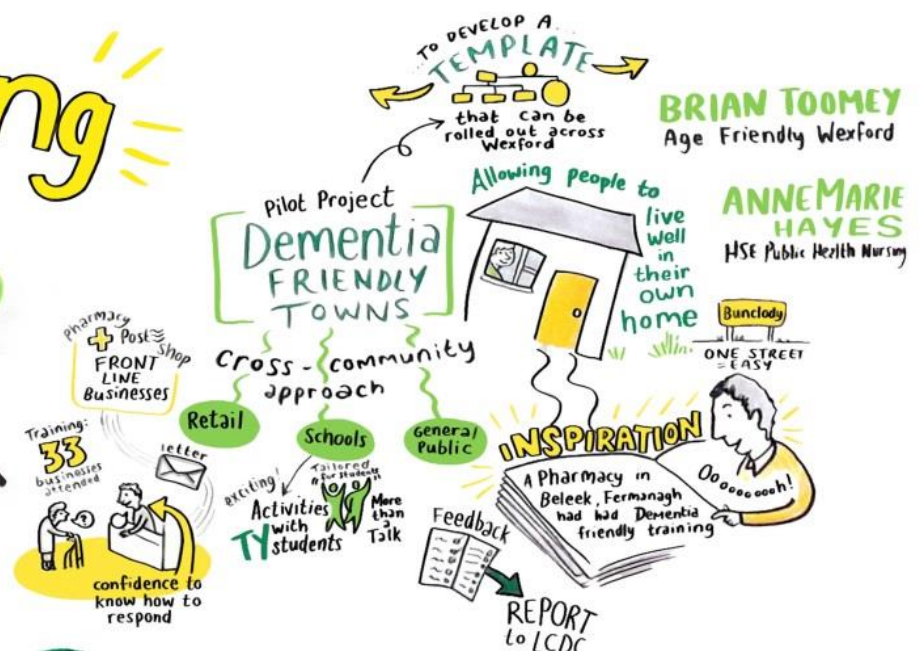 ng
TO DEVELOP A...
TEMPLATE
that can be
rolled out across
Wexford
BRIAN TOOMEY
Age Friendly Wexford
ANNEMARIE
HAYES
HSE Public Health Nursing
Pilot Project
Dementia
FRIENDLY
TOWNS
Allowing people to
live
well
in
their
own
home
Bunclody
ONE STREET
= EASY
Cross-community
approach
Retail
Schools
General
Public
Pharmacy
+ Post
Shop
FRONT
LINE
Businesses
Training:
33
businesses
attended
letter
?
confidence to
know how to
respond
exciting!
Tailored
"for students"
Activities
with
TY students
More
than
a
Talk
INSPIRATION
A Pharmacy in
Beleek, Fermanagh
had had Dementia
friendly training
Oooooooooh!
Feedback
REPORT
to LCDC